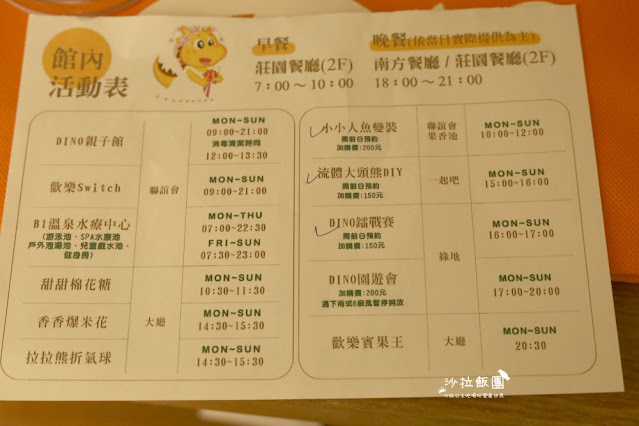 館內
活動表
早餐
莊園餐廳(2F)
7：00～10：00
晚餐(依當日實際提供為主)
南方餐廳 / 莊園餐廳(2F)
18：00～21：00
DINO親子館
MON~SUN
09:00-21:00
消毒清潔時間
12:00-13:30
歡樂Switch
聯誼會
MON~SUN
09:00-21:00
B1溫泉水療中心
(游泳池、SPA水療池
戶外泡湯池、兒童戲水池、
健身房)
MON~THU
07:00-22:30
FRI~SUN
07:30-23:00
甜甜棉花糖
MON~SUN
10:30-11:30
香香爆米花
大廳
MON~SUN
14:30-15:30
拉拉熊折氣球
MON~SUN
14:30-15:30
小小人魚變裝
需前日預約
加購價:200元
聯誼會
果香池
MON~SUN
10:00-12:00
流體大頭熊DIY
需前日預約
加購價:150元
一起吧
MON~SUN
15:00-16:00
DINO鐳戰賽
需前日預約
加購價:150元
綠地
MON~SUN
16:00-17:00
DINO園遊會
加購價:200元
遇下雨或6級風暫停開放
MON~SUN
17:00-20:00
歡樂賓果王
大廳
MON~SUN
20:30
沙拉飯團